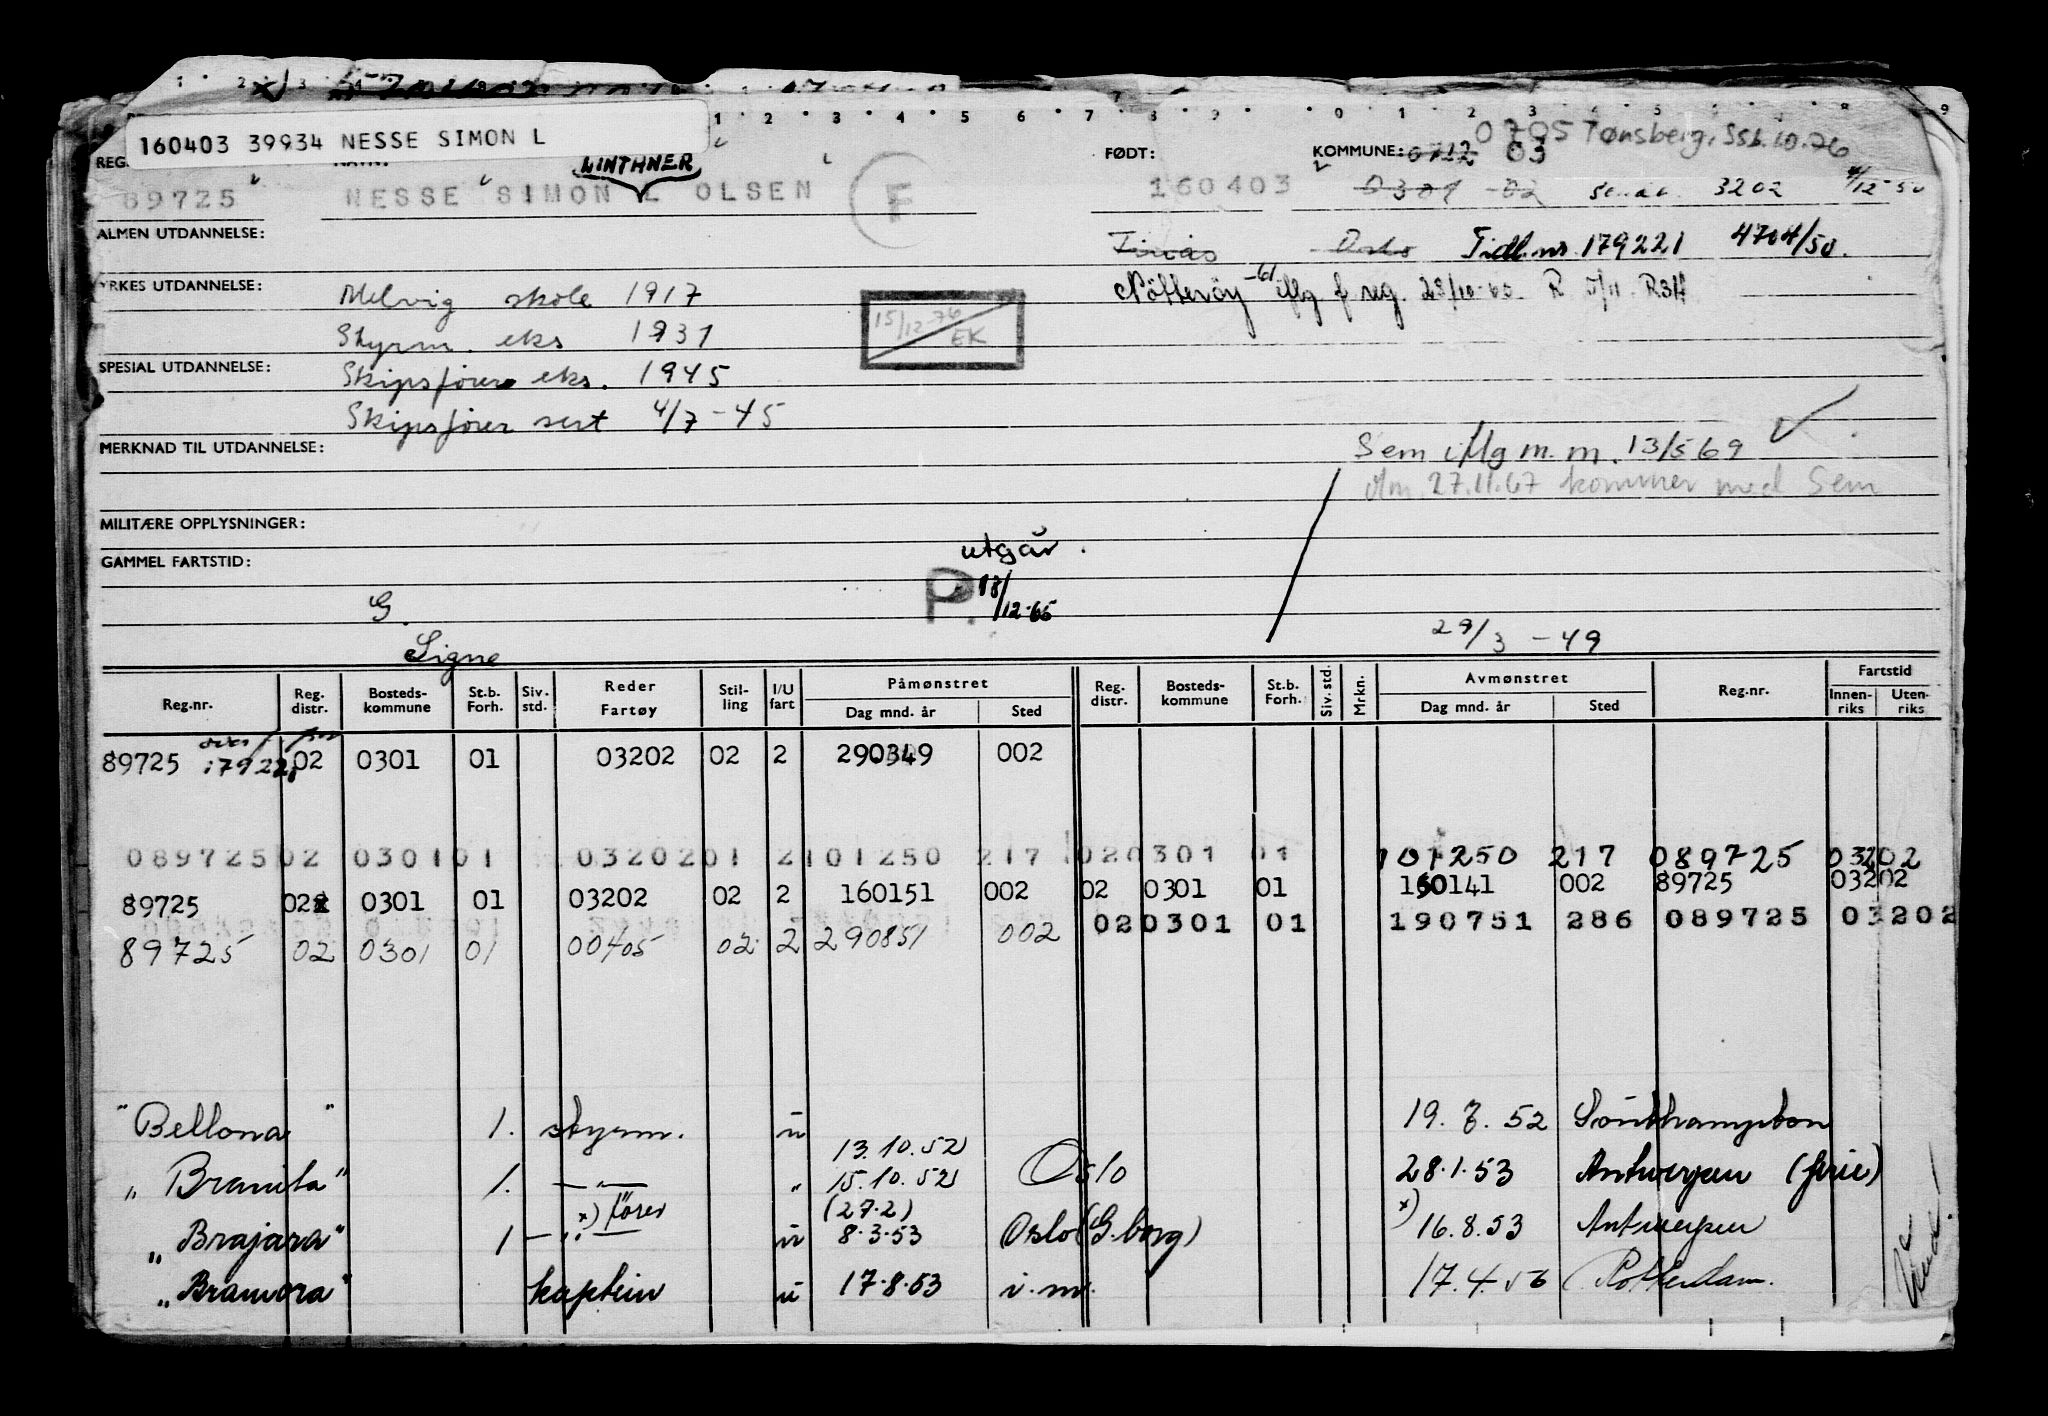 160403 39934 NESSE SIMON L
LINTHNER
FØDT:
KOMMUNE: 0712 03 0705 Tønsberg, Ssb. 10.76
89725 NESSE SIMON L OLSEN F 160403 0301 02 3202 4/12-50
ALMEN UTDANNELSE:
Oslo Tidl. nr. 179221 4704/50.
YRKES UTDANNELSE: Melvig skole 1917
Nötteröy iflg f reg. 28/10-65 R 5/11
Styrm. eks 1931
15/12-76 EK
SPESIAL UTDANNELSE: Skipsfører eks. 1945
Skipsfører sert 4/7-45
MERKNAD TIL UTDANNELSE:
Sem iflg m.m. 13/5 69
27.11.67 kommer med Sem
MILITÆRE OPPLYSNINGER:
utgår.
GAMMEL FARTSTID:
P. 18/12-65
G.
Signe
29/3 - 49
Reg.nr. Reg. distr. Bosteds-kommune St.b. Forh. Siv. std. Reder Fartøy Stil-ling I/U fart Påmønstret Dag mnd. år Sted Reg. distr. Bosteds-kommune St.b. Forh. Siv. std. Mrkn. Avmønstret Dag mnd. år Sted Reg.nr. Fartstid Innen-riks Uten-riks
89725 179221 02 0301 01 03202 02 2 290349 002
089725 02 0301 01 03202 01 2 101250 217 02 0301 01 101250 217 089725 03202
89725 02 0301 01 03202 02 2 160151 002 02 0301 01 160141 002 89725 03202
02 0301 01 190751 286 089725 03202
89725 02 0301 01 00405 02 2 290851 002
"Bellona" 1. styrm. u 19.7.52 Southampton
13.10.52
"Branita" 1. — " — " 15.10.52 Oslo 28.1.53 Antwerpen (ferie)
x) fører (27.2) x)
"Brajara" 1 — " — u 8.3.53 Oslo (G.borg) 16.8.53 Antwerpen
"Bramora" kaptein u 17.8.53 i.m. 17.4.56 Rotterdam.